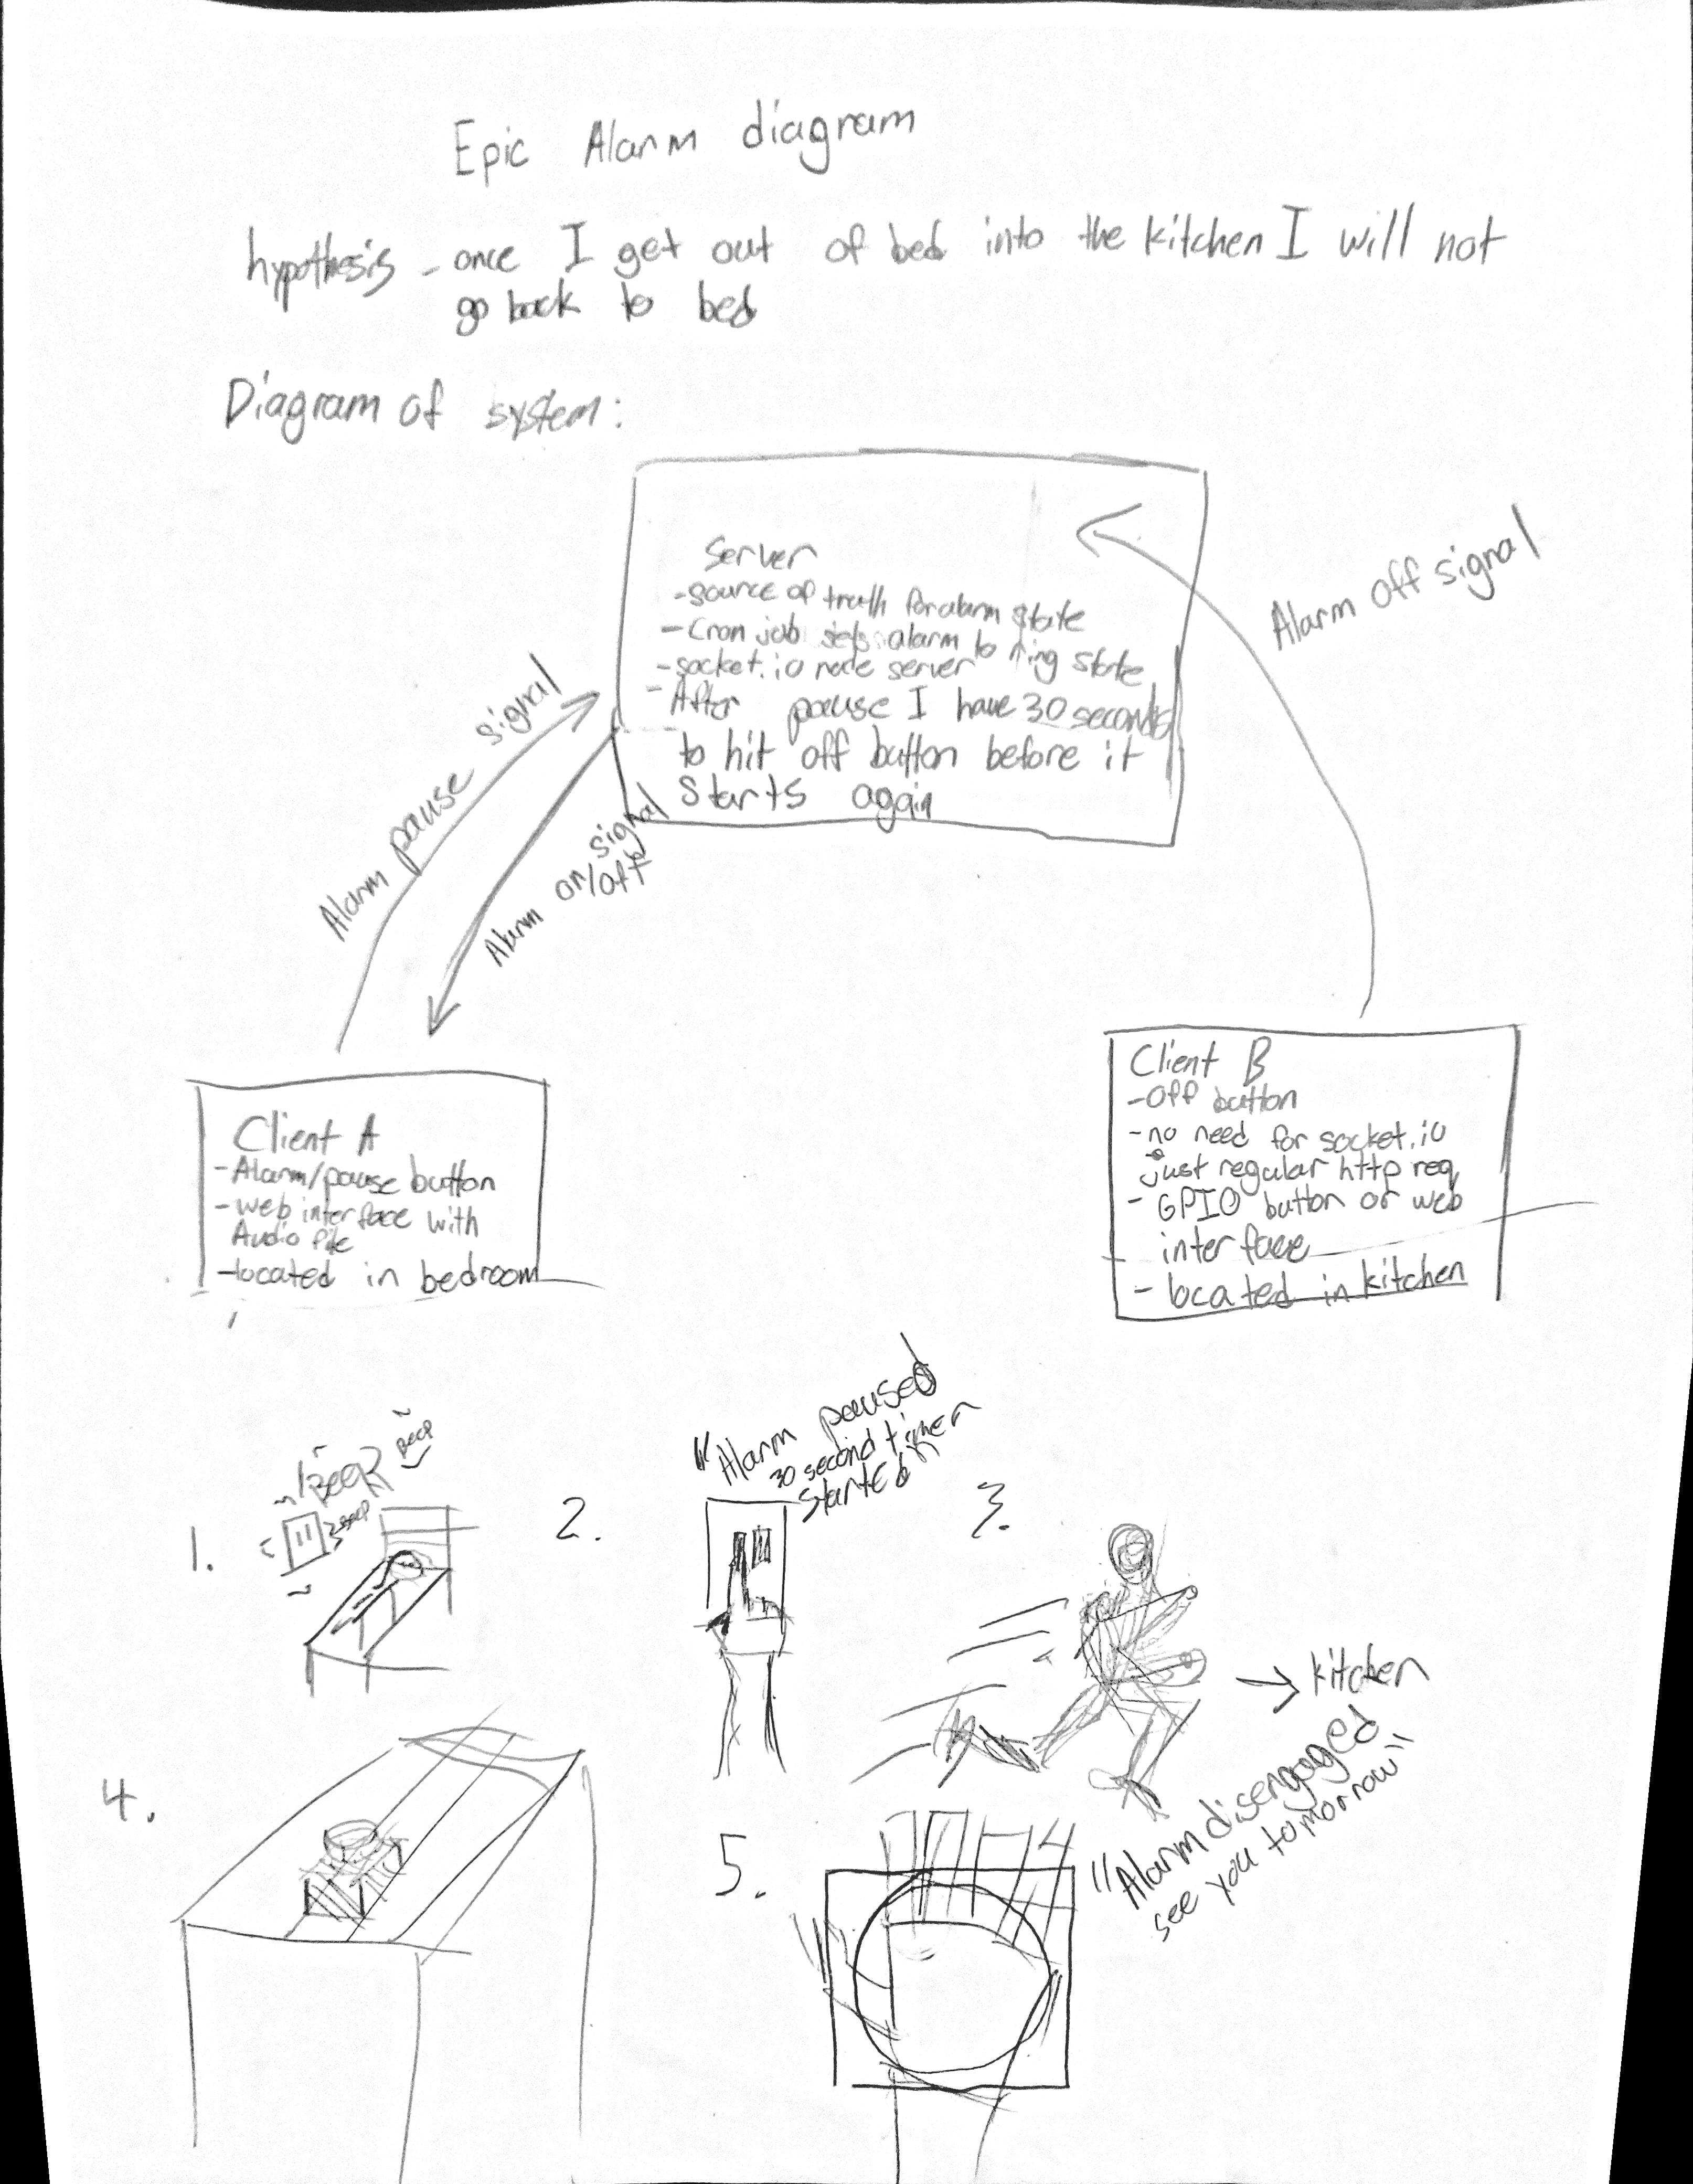 Epic Alarm diagram
hypothesis - once I get out of bed into the kitchen I will not
go back to bed
Diagram of system:
Server
- source of truth for alarm state
- Cron job sets alarm to ring state
- socket.io node server
- After pause I have 30 seconds
to hit off button before it
starts again
Alarm pause signal
Alarm on/off
signal
Alarm off signal
Client A
- Alarm/pause button
- web interface with
Audio file
- located in bedroom
Client B
- Off button
- no need for socket.io
just regular http req
- GPIO button or web
interface
- located in kitchen
1.
BEEP
BEEP
BEEP
2.
"Alarm paused
30 second timer
started
3.
→ kitchen
4.
5.
"Alarm disengaged
see you tomorrow"